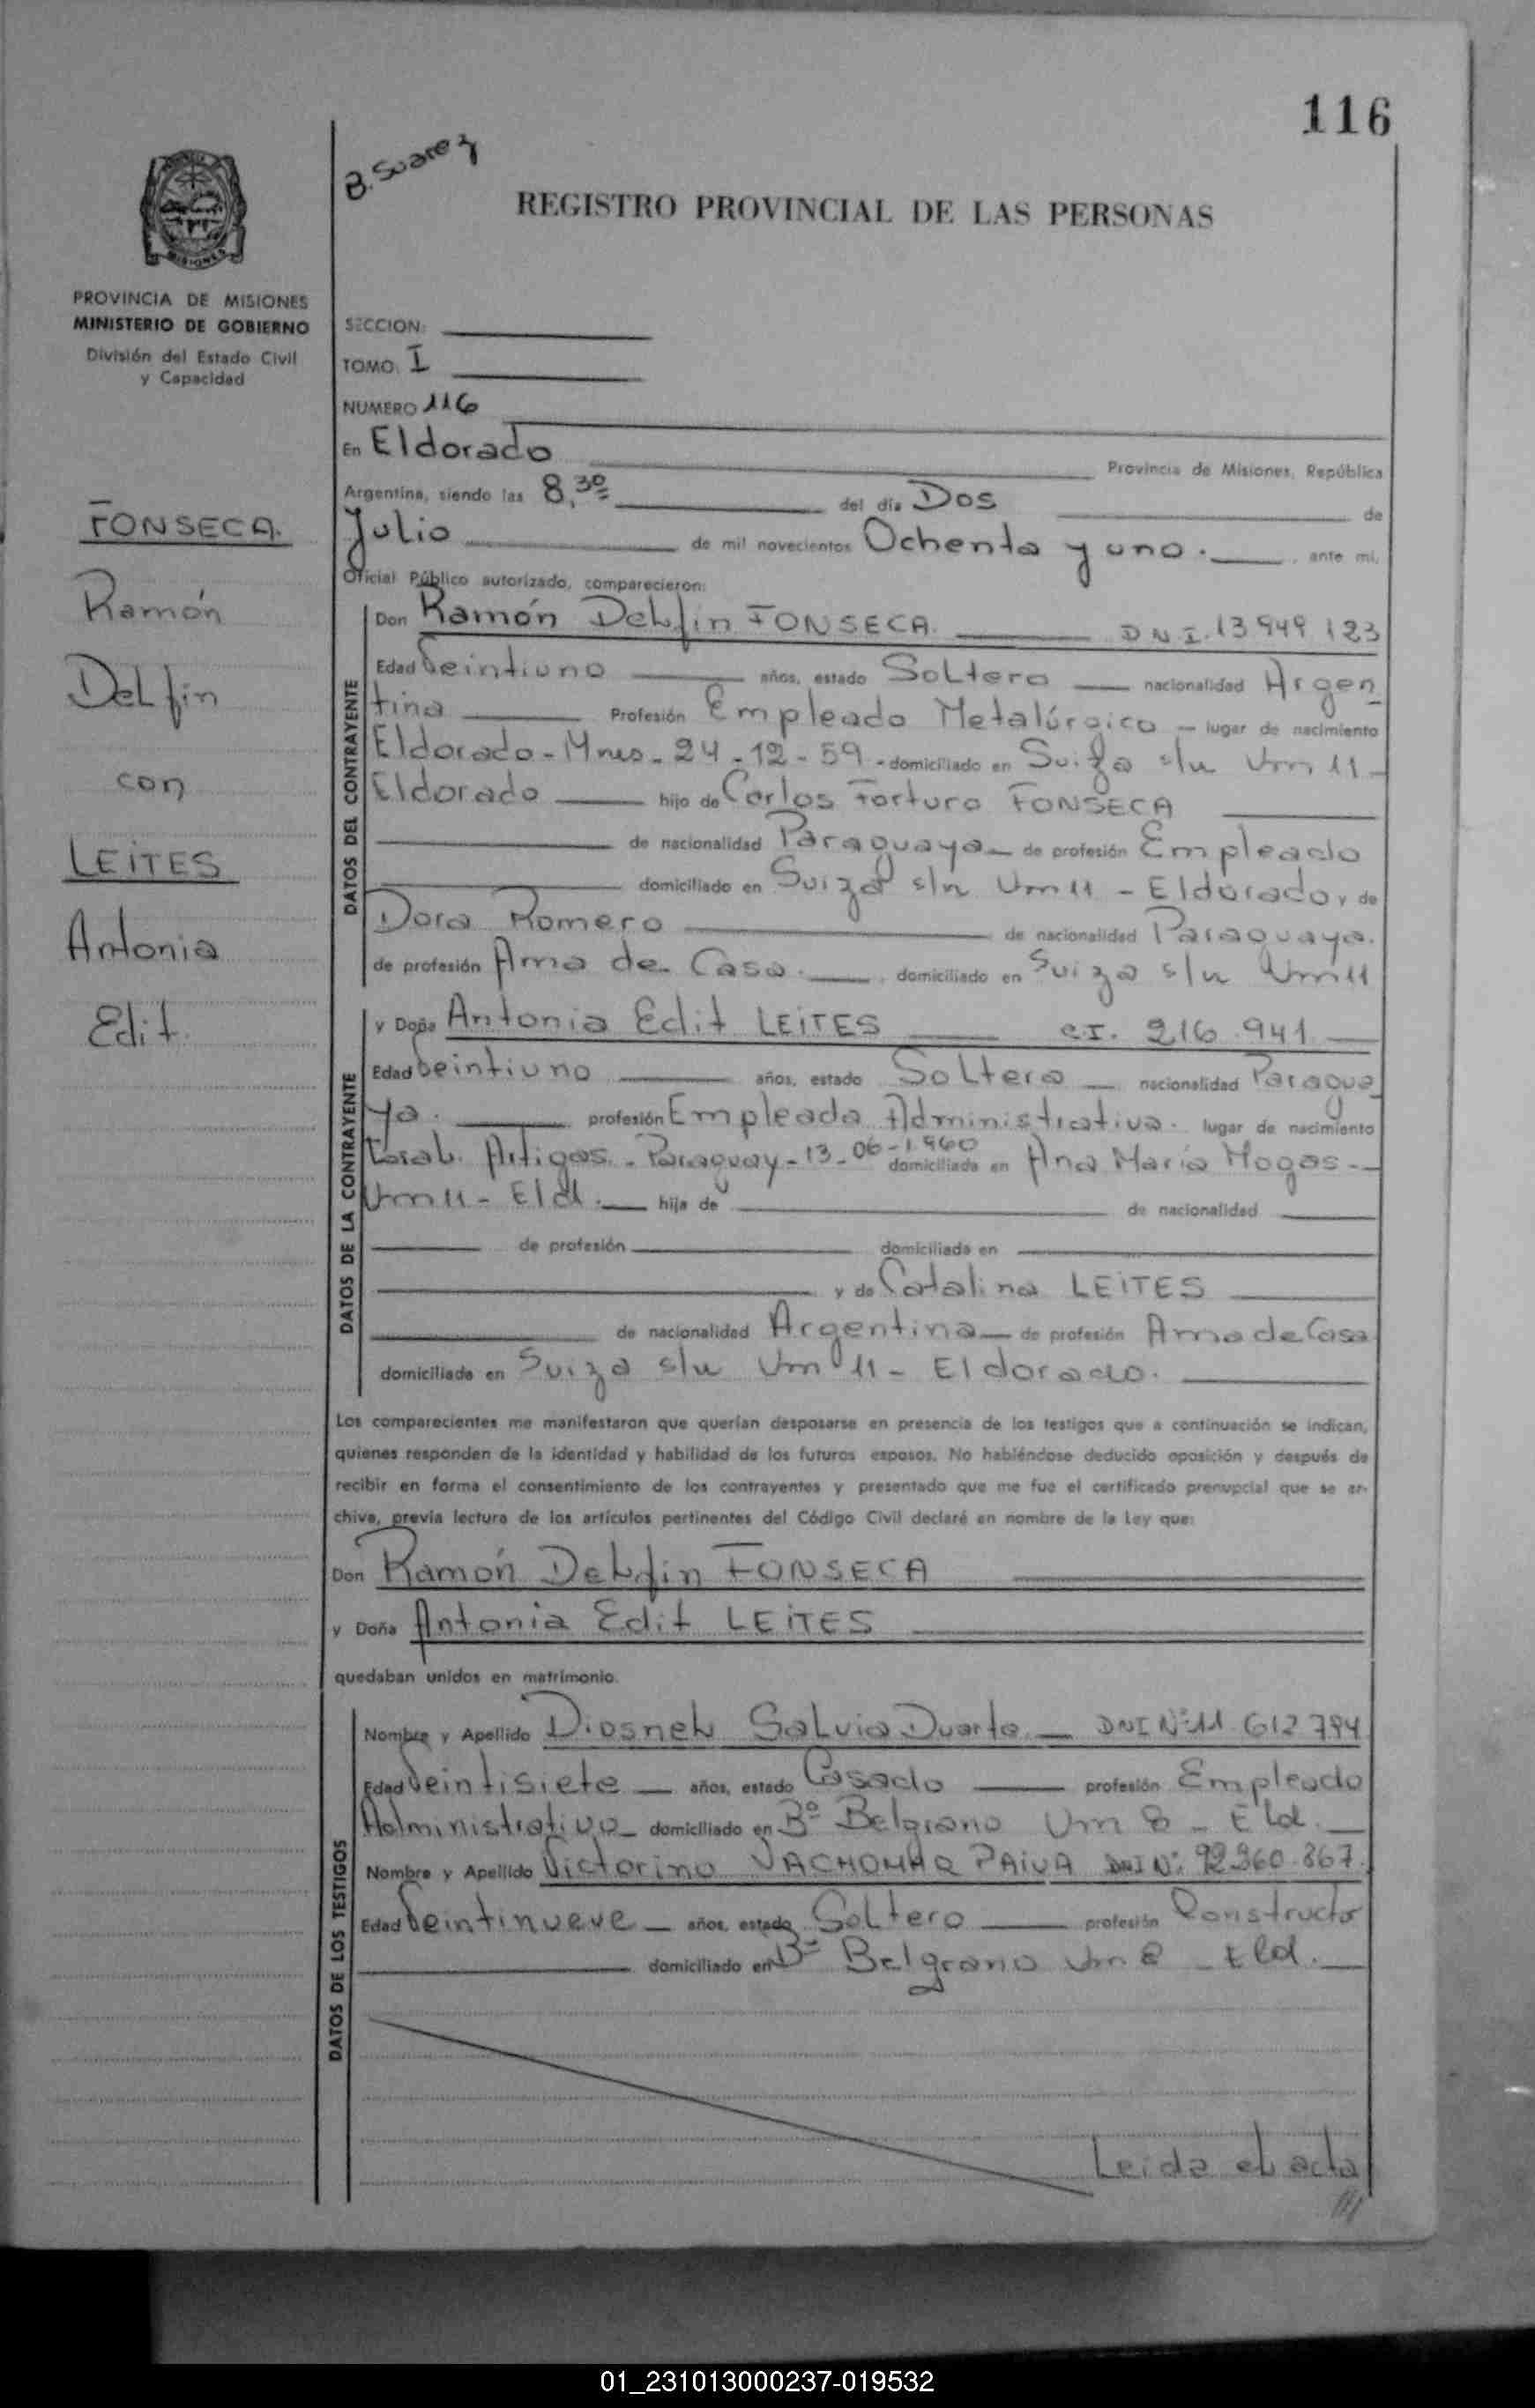 116
B. Suarez
REGISTRO PROVINCIAL DE LAS PERSONAS
MISIONES
PROVINCIA DE MISIONES
MINISTERIO DE GOBIERNO
División del Estado Civil
y Capacidad
FONSECA.
Ramón
Delfin
con
LEITES
Antonia
Edit.
SECCION:
TOMO: I
NUMERO 116
En Eldorado Provincia de Misiones, República
Argentina, siendo las 8,30 del día Dos de
Julio de mil novecientos Ochenta y uno. ante mi,
Oficial Público autorizado, comparecieron:
DATOS DEL CONTRAYENTE
Don Ramón Delfin FONSECA. DNI. 13 949 123
Edad Veintiuno años, estado Soltero nacionalidad Argen
tina Profesión Empleado Metalúrgico - lugar de nacimiento
Eldorado - Mnes - 24 - 12 - 59 - domiciliado en Suiza s/n Km 11 -
Eldorado hijo de Carlos Forturo FONSECA
de nacionalidad Paraguaya de profesión Empleado
domiciliado en Suiza s/n Km 11 - Eldorado y de
Dora Romero de nacionalidad Paraguaya.
de profesión Ama de Casa. domiciliado en Suiza s/n Km 11
DATOS DE LA CONTRAYENTE
y Doña Antonia Edit LEITES C.I. 216.941
Edad Veintiuno años, estado Soltera nacionalidad Paragua
ya. profesión Empleada Administrativa. lugar de nacimiento
Artigas - Paraguay - 13 - 06 - 1960 domiciliada en Ana María Mogas -
Km 11 - Eld. hija de de nacionalidad
de profesión domiciliada en
y de Catalina LEITES
de nacionalidad Argentina de profesión Ama de Casa
domiciliada en Suiza s/n Km 11 - Eldorado.
Los comparecientes me manifestaron que querían desposarse en presencia de los testigos que a continuación se indican,
quienes responden de la identidad y habilidad de los futuros esposos. No habiéndose deducido oposición y después de
recibir en forma el consentimiento de los contrayentes y presentado que me fue el certificado prenupcial que se ar-
chiva, previa lectura de los artículos pertinentes del Código Civil declaré en nombre de la Ley que:
Don Ramón Delfin FONSECA
y Doña Antonia Edit LEITES
quedaban unidos en matrimonio.
DATOS DE LOS TESTIGOS
Nombre y Apellido Diosnel Galvio Duarte DNI Nº 11.612.794
Edad Veintisiete años, estado Casado profesión Empleado
Administrativo domiciliado en Bº Belgrano Km 8 - Eld.
Nombre y Apellido Victorino PAIVA DNI Nº: 92.360.867.
Edad Veintinueve años, estado Soltero profesión Constructor
domiciliado en Bº Belgrano Km 8 - Eld.
Leida el acta
01_231013000237-019532